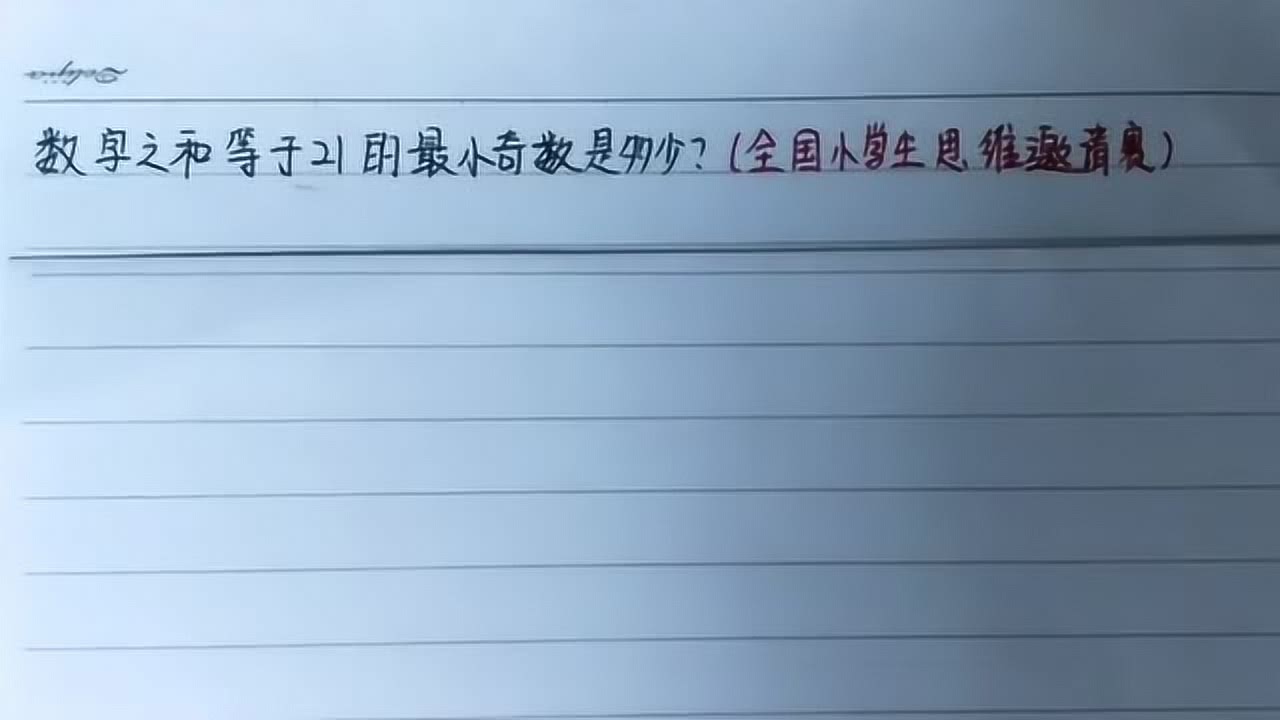 Delijia
数字之和等于21的最小奇数是多少？(全国小学生思维邀请赛)